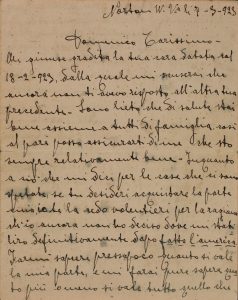 Norton W. Va. li 7-3-923
Domenico Carissimo
Mi giunse gradita la tua cara datata sul
18-2-923, dalla quale mi
ancora non ti devo risposto all'altra tua
precedente. Sono lieto che di salute stai
bene assieme a tutti di famiglia così
al pare posso assicurarti di me che sto
sempre relativamente bene - Inquanto
a ciò che mi dici per le case che si sono
se tu desideri acquistare la parte
mia te la cedo volentieri per la ragione
ch'io ancora non ho deciso dove mi stabi
lirò definitivamente dopo fatto l'america
Farmi sapere pressapoco quanto si vale
la mia parte, e mi farai pure sapere quan
to più o meno si vale tutto quello che